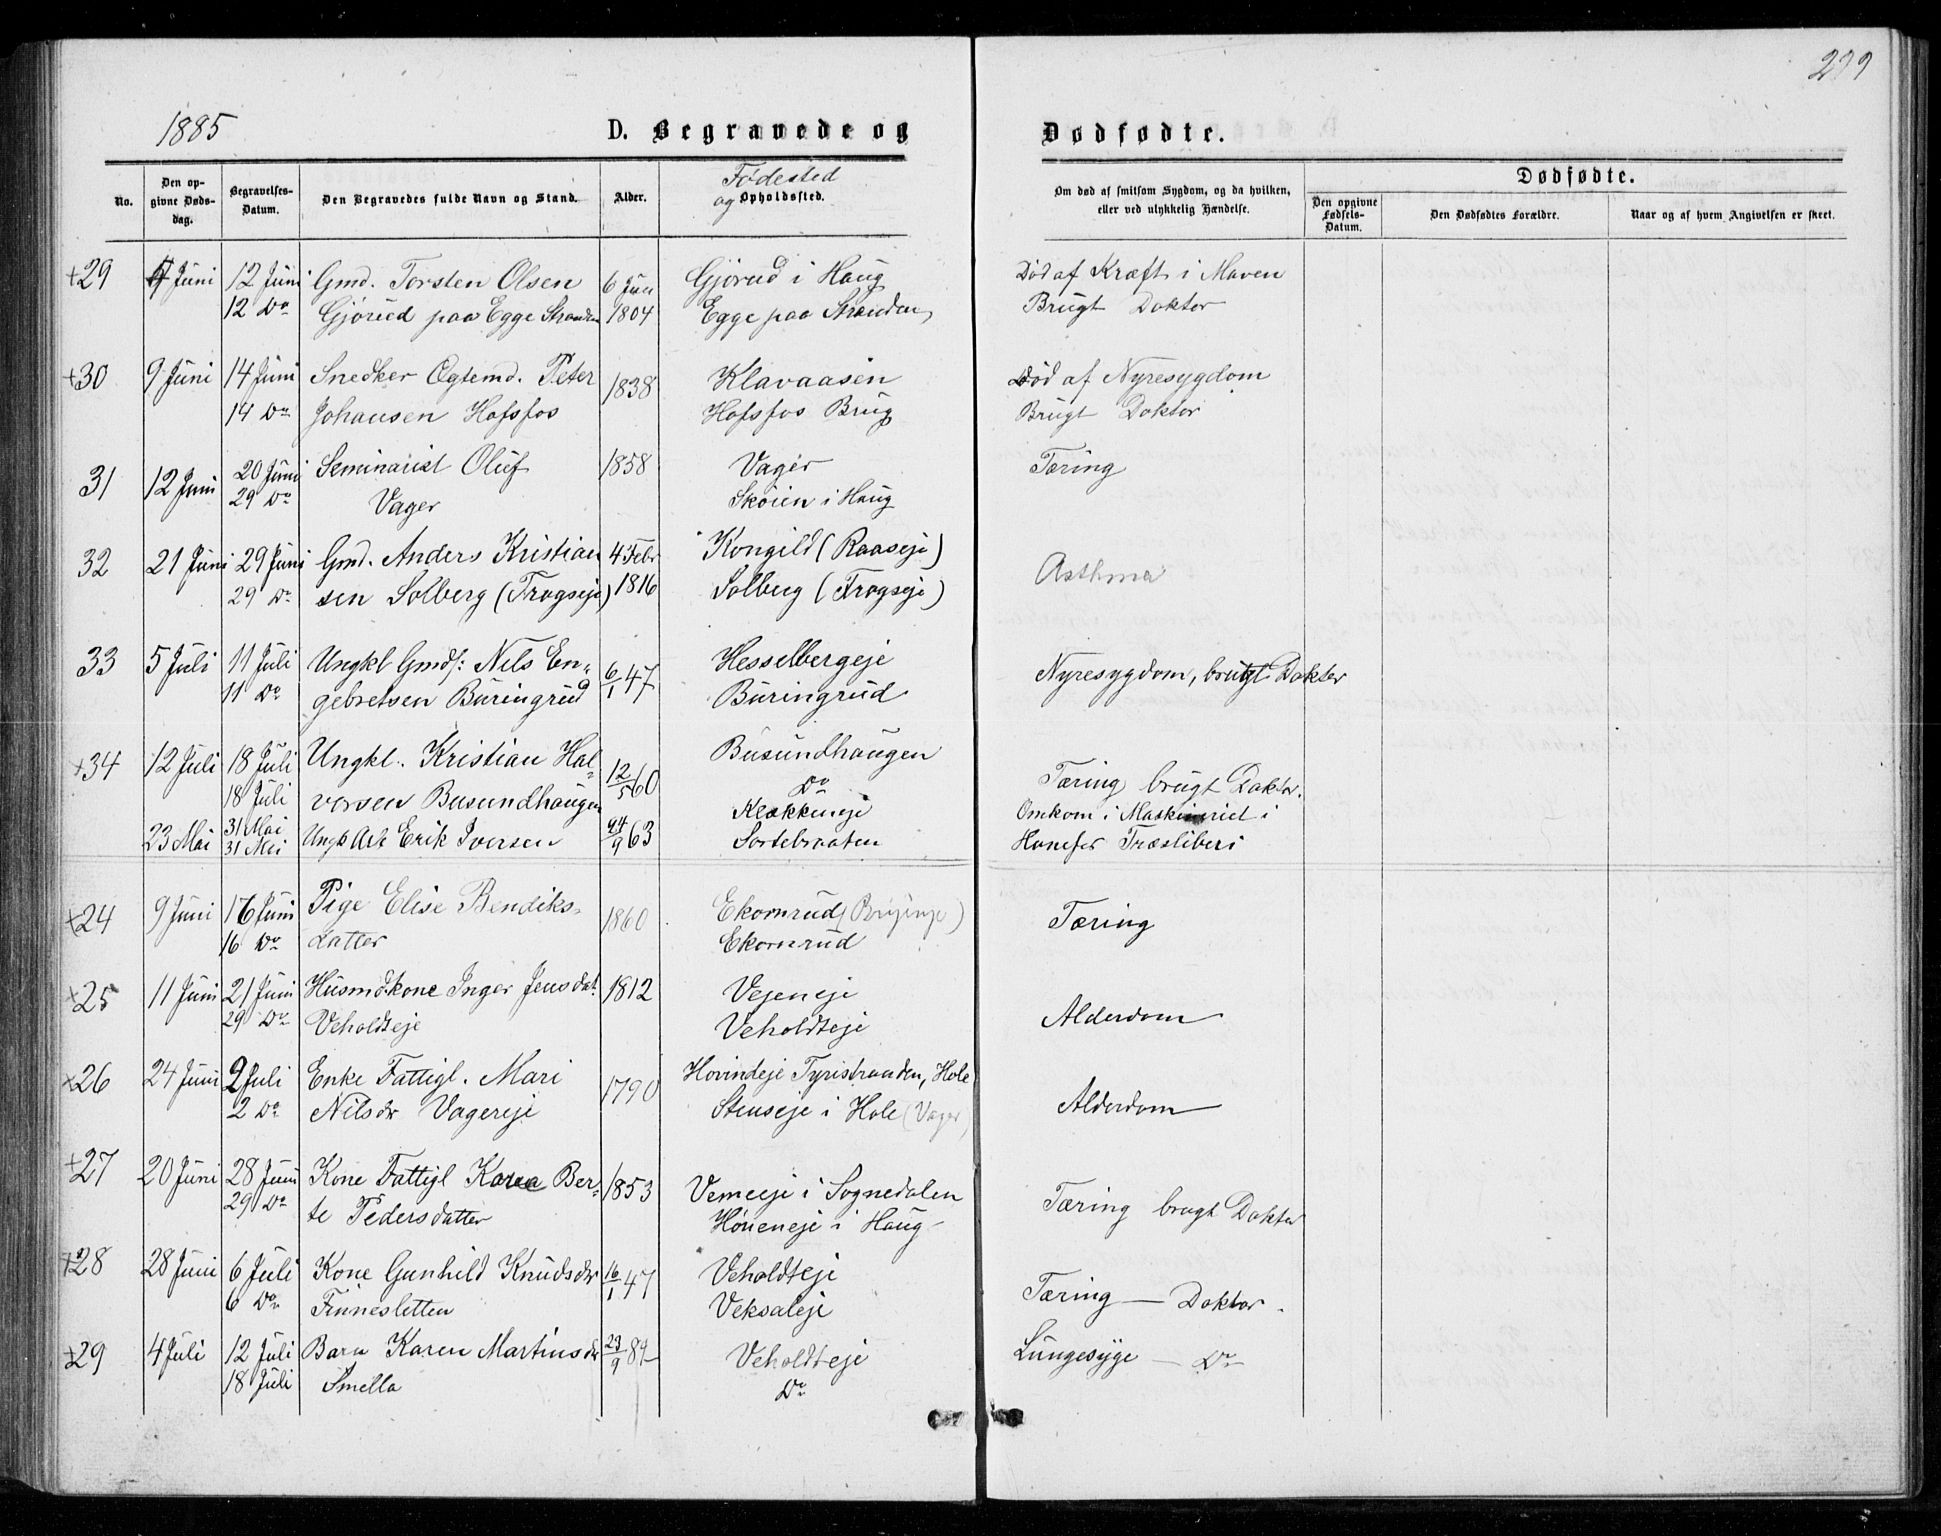 299
1885
D. Begravede og Dødfødte.
No.
Den opgivne Dødsdag.
Begravelses-Datum.
Den Begravedes fulde Navn og Stand.
Alder.
Fødested
og Opholdssted.
Om død af smitsom Sygdom, og da hvilken,
eller ved ulykkelig Hændelse.
Dødfødte.
Den opgivne Fødsels-Datum.
Den Dødfødtes Forældre.
Naar og af hvem Angivelsen er skeet.
+29 Juni 12 Juni Gmd. Torsten Olsen 6 Jun Gjørud i Haug Død af Kræft i Maven
12 Do Gjørud paa Egge Stranden 1804 Egge paa Stranden Brugt Doktor
+30 9 Juni 14 Juni Snedker Ogtemd. Peter 1838 Klavaasen Død af Nyresygdom
14 Do Johansen Hofsfos Hofsfos Brug Brugt Doktor
31 12 Juni 20 Juni Seminarist Oluf 1858 Vager Tæring
29 Do Vager Skøien i Haug
32 21 Juni 29 Juni Gmd. Anders Kristian 4 Febr Kongild (Raaseje) Asthma
29 Do sen Solberg (Frogseje) 1816 Solberg (Frogseje)
33 5 Juli 11 Juli Ungkl Gmds: Nils En- 6/1 47 Hesselbergeje Nyresygdom, brugt Doktor
11 Do gebretsen Buringrud Buringrud
+34 12 Juli 18 Juli Ungkl. Kristian Hal- 12/5 60 Busundhaugen Tæring brugt Doktor.
18 Juli versen Busundhaugen Do
23 Mai 31 Mai Ungk Arb Erik Iversen 24/9 63 Klækkeneje Omkom i Maskineriet i
31 Mai Sortebraaten Hønefos Træsliberi
+24 9 Juni 16 Juni Pige Elise Bendiks- 1860 Ekornrud Tæring
16 Do datter Ekornrud
+25 11 Juni 21 Juni Husmdkone Inger Jensdat. 1812 Vejeneje Alderdom
29 Do Veholdteje Veholdteje
+26 24 Juni 2 Juli Enke Fattigl. Mari 1790 Hovindeje Tyristranden, Hole Alderdom
2 Do Nilsdr Vagereje Stenseje i Hole (Vager)
+27 20 Juni 28 Juni Kone Fattigl Karen Ber- 1853 Vemeeje i Sognedalen Tæring brugt Doktor
29 Do te Pedersdatter Høneneje i Haug
+28 28 Juni 6 Juli Kone Gunhild Knudsdr 16/1 47 Veholdteje Tæring — Doktor.
6 Do Finnesletten Veksaleje
+29 4 Juli 12 Juli Barn Karen Martinsdr 23/9 84 Veholdteje Lungesyge — Do
18 Juli Smella Do